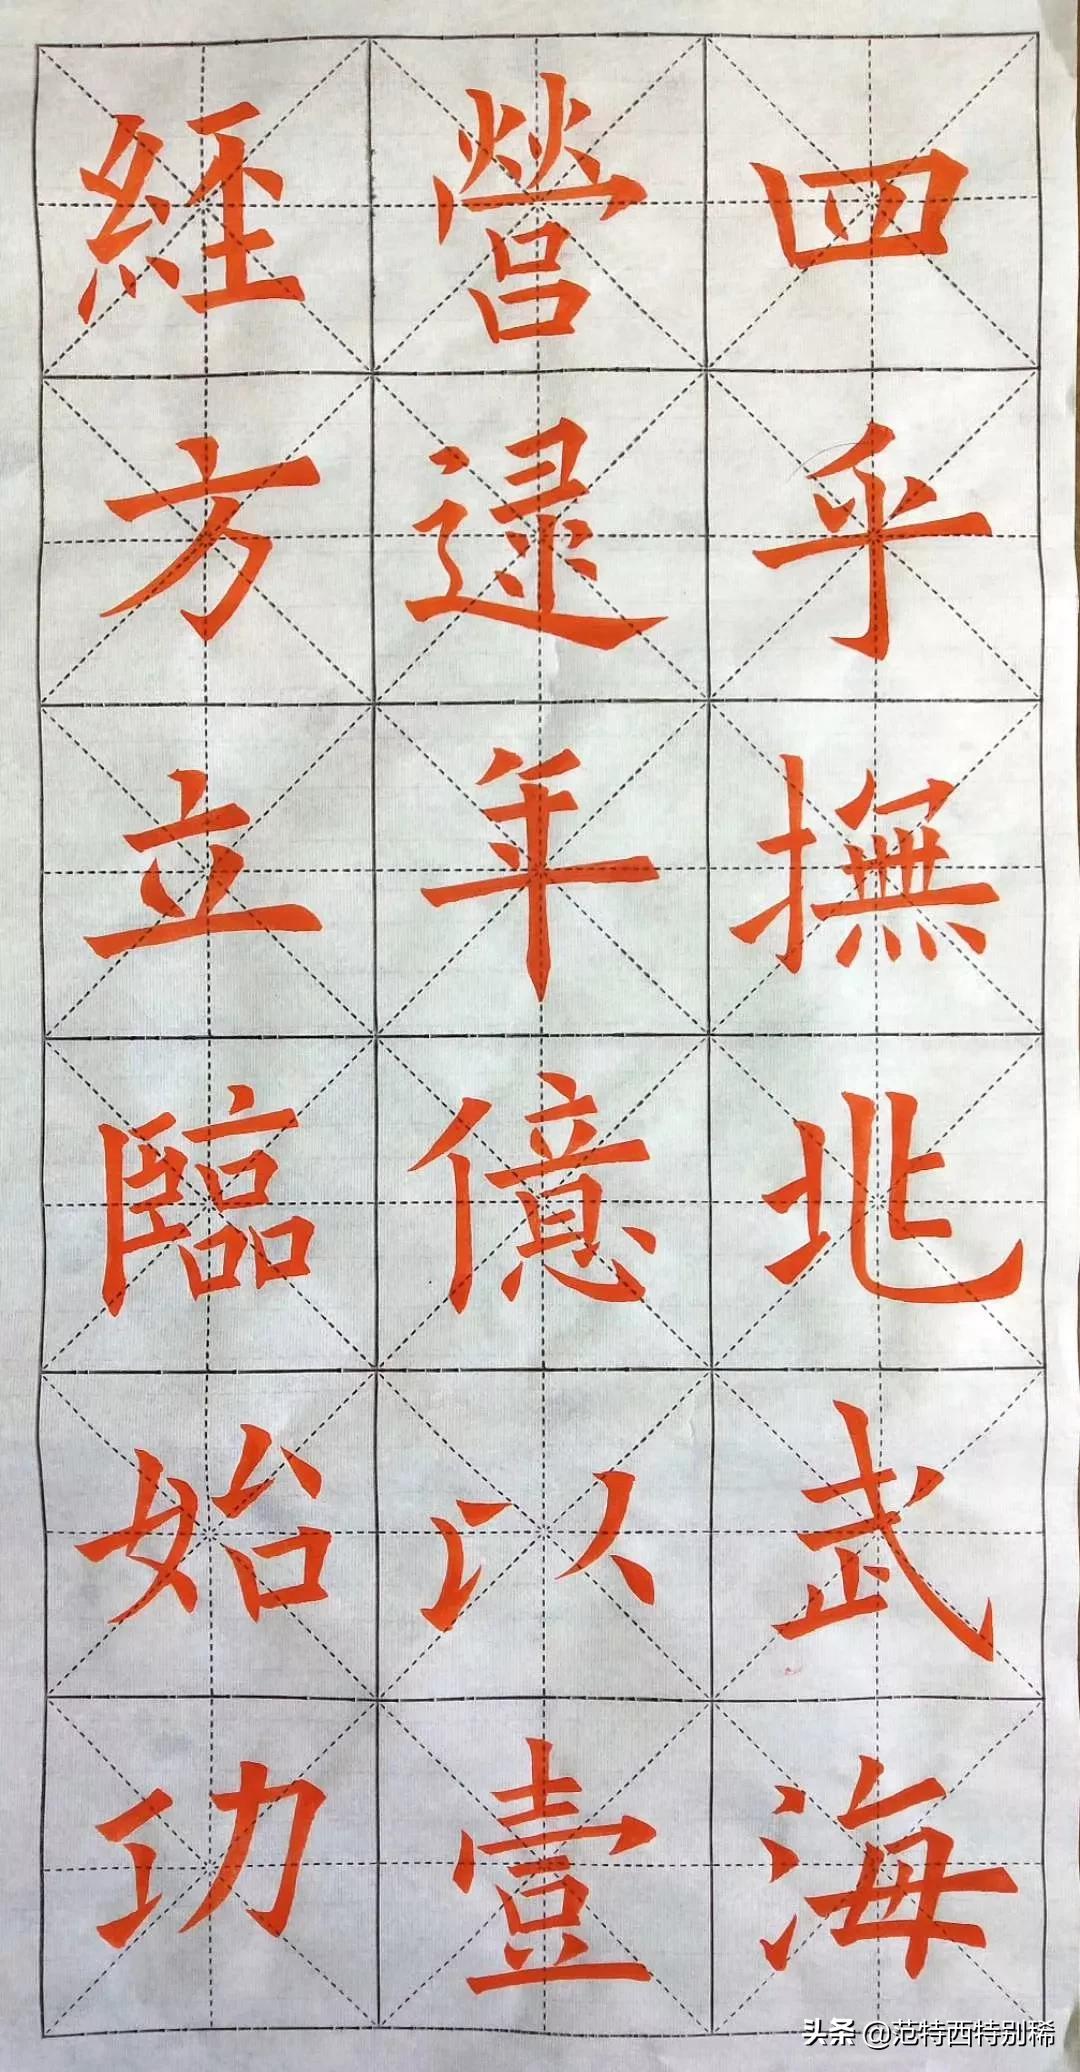 經營四
方逮乎
立年撫
臨億兆
始以武
功壹海
头条 @范特西特别稀